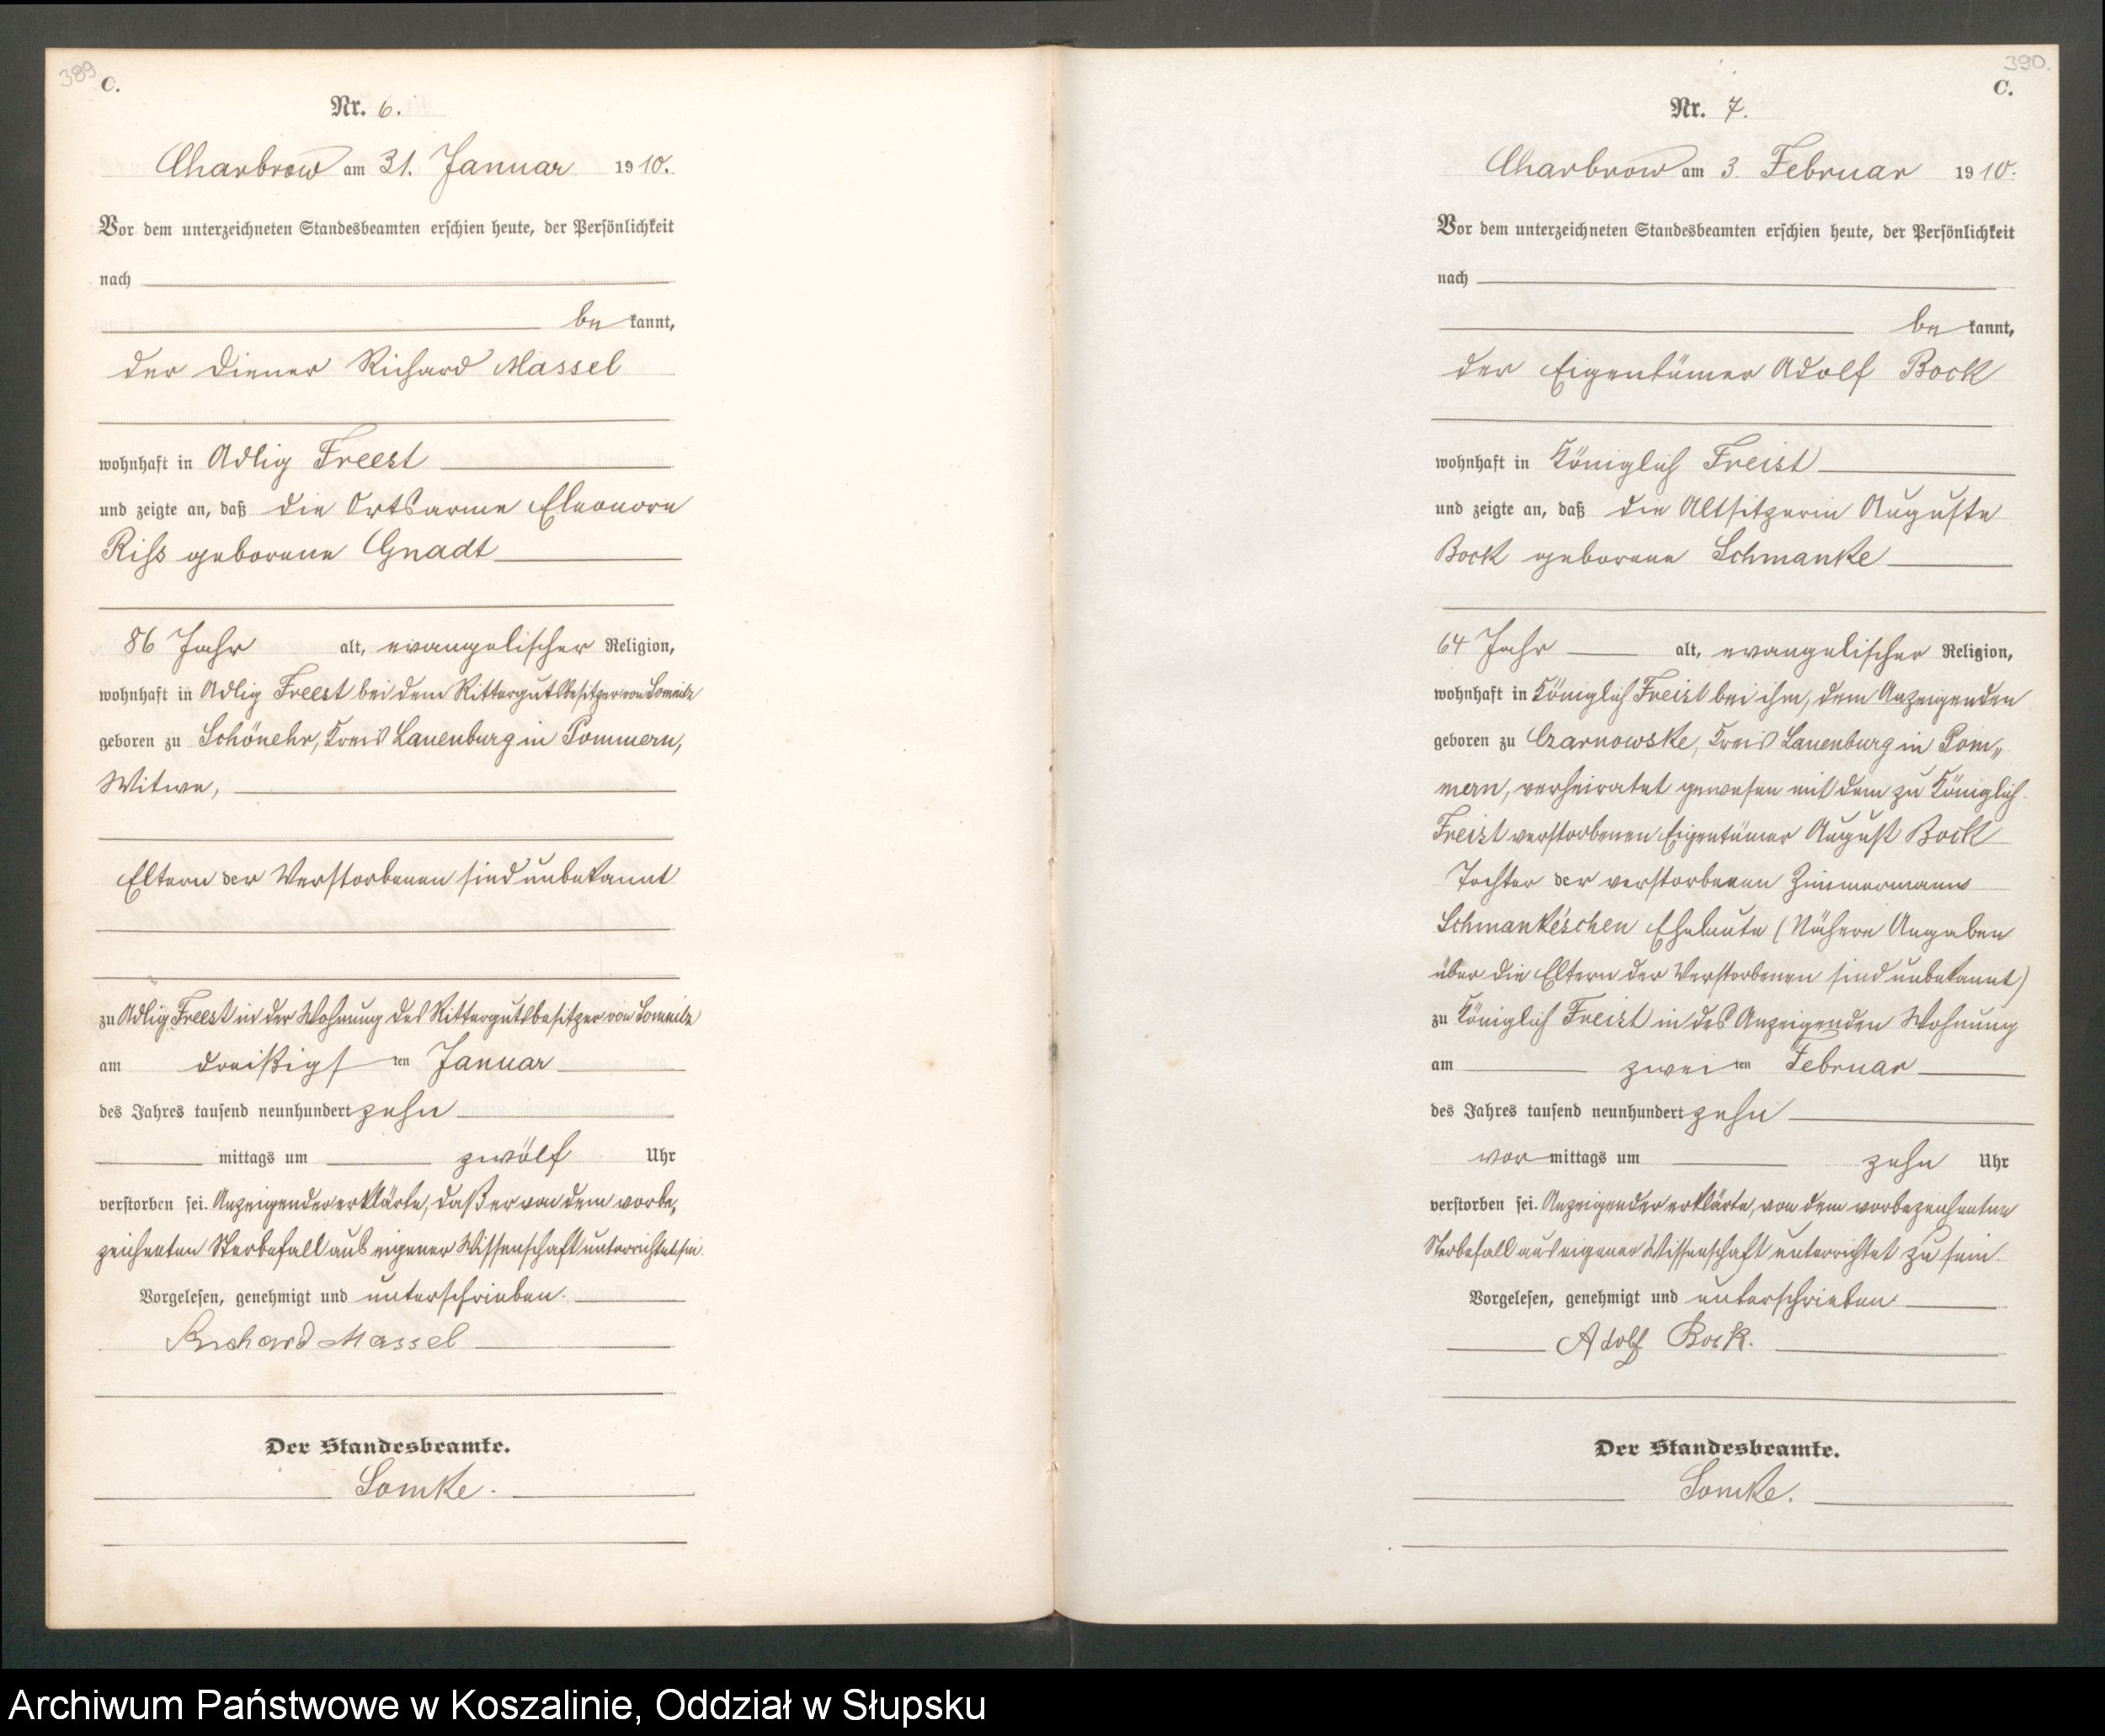 389
C.
Nr. 6.
Charbrow am 31. Januar 1910.
Vor dem unterzeichneten Standesbeamten erschien heute, der Persönlichkeit
nach
be kannt,
der Diener Richard Massel
wohnhaft in Adlig Freest
und zeigte an, daß die Ortsarme Eleonore
Riss geborene Gnadt
86 Jahr alt, evangelischer Religion,
wohnhaft in Adlig Freest bei dem Rittergutsbesitzer von
geboren zu Schönehr, Kreis Lauenburg in Pommern,
Witwe,
Eltern der Verstorbenen sind unbekannt
zu Adlig Freest in der Wohnung des Rittergutsbesitzer von
am dreißigsten Januar
des Jahres tausend neunhundert zehn
mittags um zwölf Uhr
verstorben sei. Anzeigender erklärte, daß er von dem vorbe„
zeichneten Sterbefall aus eigener Wissenschaft unterrichtet sei.
Vorgelesen, genehmigt und unterschrieben.
Richard Massel
Der Standesbeamte.
Lomke.
390.
C.
Nr. 7.
Charbrow am 3. Februar 1910.
Vor dem unterzeichneten Standesbeamten erschien heute, der Persönlichkeit
nach
be kannt,
der Eigentümer Adolf Bock
wohnhaft in Königlich Freist
und zeigte an, daß die Altsitzerin Auguste
Bock geborene Schmanke
64 Jahr alt, evangelischer Religion,
wohnhaft in Königlich Freist bei ihm, dem Anzeigenden
geboren zu Czarnowske, Kreis Lauenburg in Pom„
mern, verheiratet gewesen mit dem zu Königlich
Freist verstorbenen Eigentümer August Bock
Tochter der verstorbenen Zimmermann
Schmanke'schen Eheleute (Nähere Angaben
über die Eltern der Verstorbenen sind unbekannt)
zu Königlich Freist in des Anzeigenden Wohnung
am zweiten Februar
des Jahres tausend neunhundert zehn
vor mittags um zehn Uhr
verstorben sei. Anzeigender erklärte, von dem vorbezeichneten
Sterbefall aus eigener Wissenschaft unterrichtet zu sein.
Vorgelesen, genehmigt und unterschrieben
Adolf Bock.
Der Standesbeamte.
Lomke.
Archiwum Państwowe w Koszalinie, Oddział w Słupsku